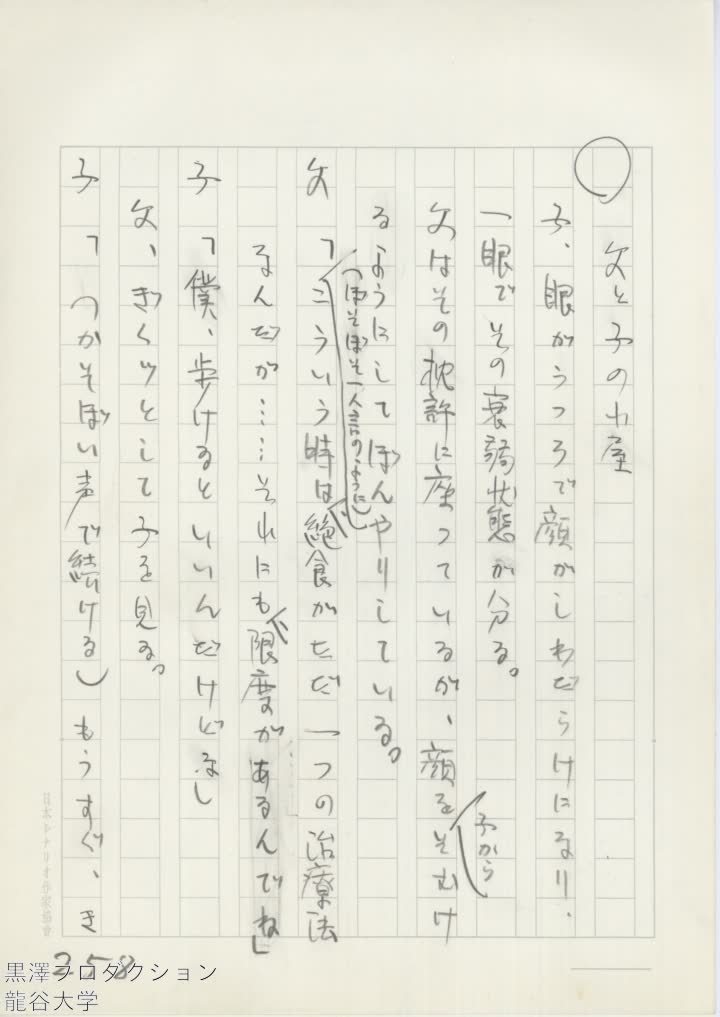 ○
父と子の小屋
子、眼がうつろで顔がしわだらけになり、
一眼でその衰弱状態が分る。
父はその枕許に座っているが、子から顔をそむけ
るようにしてぼんやりしている。
父「(ぼそぼそ一人言のように)こういう時は絶食がただ一つの治療法
なんだが……それにも限度があるんでね」
子「僕、歩けるといいんだけどな」
父、ぎくッとして子を見る。
子「(かそぼい声で続ける)もうすぐ、き
日本シナリオ作家協会
258
黒澤プロダクション
龍谷大学